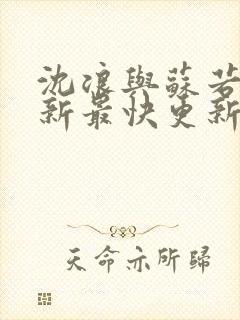 沈浪與蘇若
新最快更新
天命亦所歸